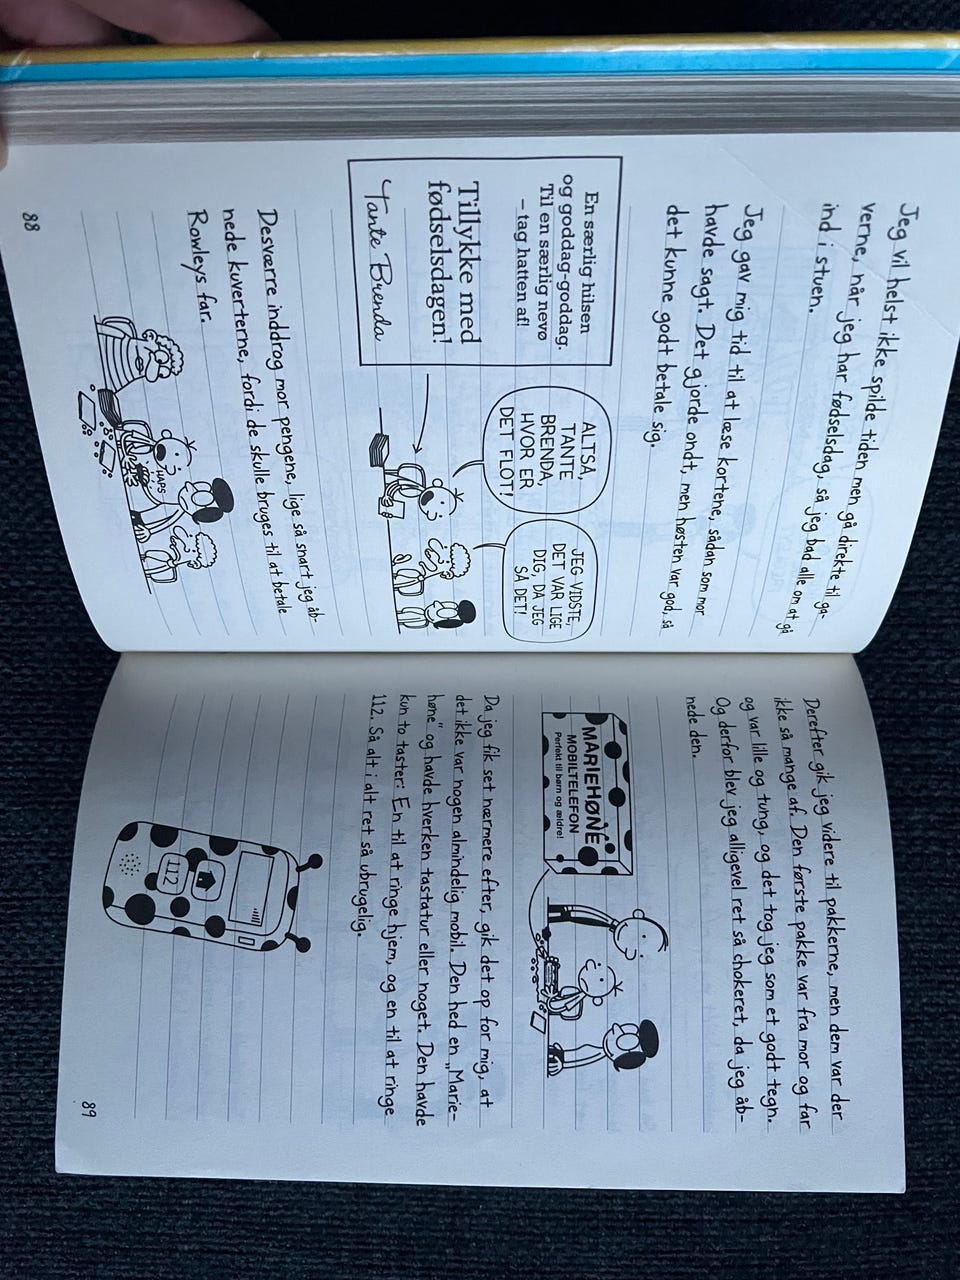 Jeg vil helst ikke spilde tiden men gå direkte til ga-
verne, når jeg har fødselsdag, så jeg bad alle om at gå
ind i stuen.
Jeg gav mig tid til at læse kortene, sådan som mor
havde sagt. Det gjorde ondt, men høsten var god, så
det kunne godt betale sig.
En særlig hilsen
og goddag-goddag.
Til en særlig nevø
– tag hatten af!
Tillykke med
fødselsdagen!
Tante Brenda
ALTSÅ,
TANTE
BRENDA,
HVOR ER
DET FLOT!
JEG VIDSTE,
DET VAR LIGE
DIG, DA JEG
SÅ DET!
Desværre inddrog mor pengene, lige så snart jeg åb-
nede kuverterne, fordi de skulle bruges til at betale
Rowleys far.
HAPS
88
Derefter gik jeg videre til pakkerne, men dem var der
ikke så mange af. Den første pakke var fra mor og far
og var lille og tung, og det tog jeg som et godt tegn.
Og derfor blev jeg alligevel ret så chokeret, da jeg åb-
nede den.
MARIEHØNE
MOBILTELEFON
Perfekt til børn og ældre!
Da jeg fik set nærmere efter, gik det op for mig, at
det ikke var nogen almindelig mobil. Den hed en „Marie-
høne" og havde hverken tastatur eller noget. Den havde
kun to taster: En til at ringe hjem, og en til at ringe
112. Så alt i alt ret så ubrugelig.
112
89